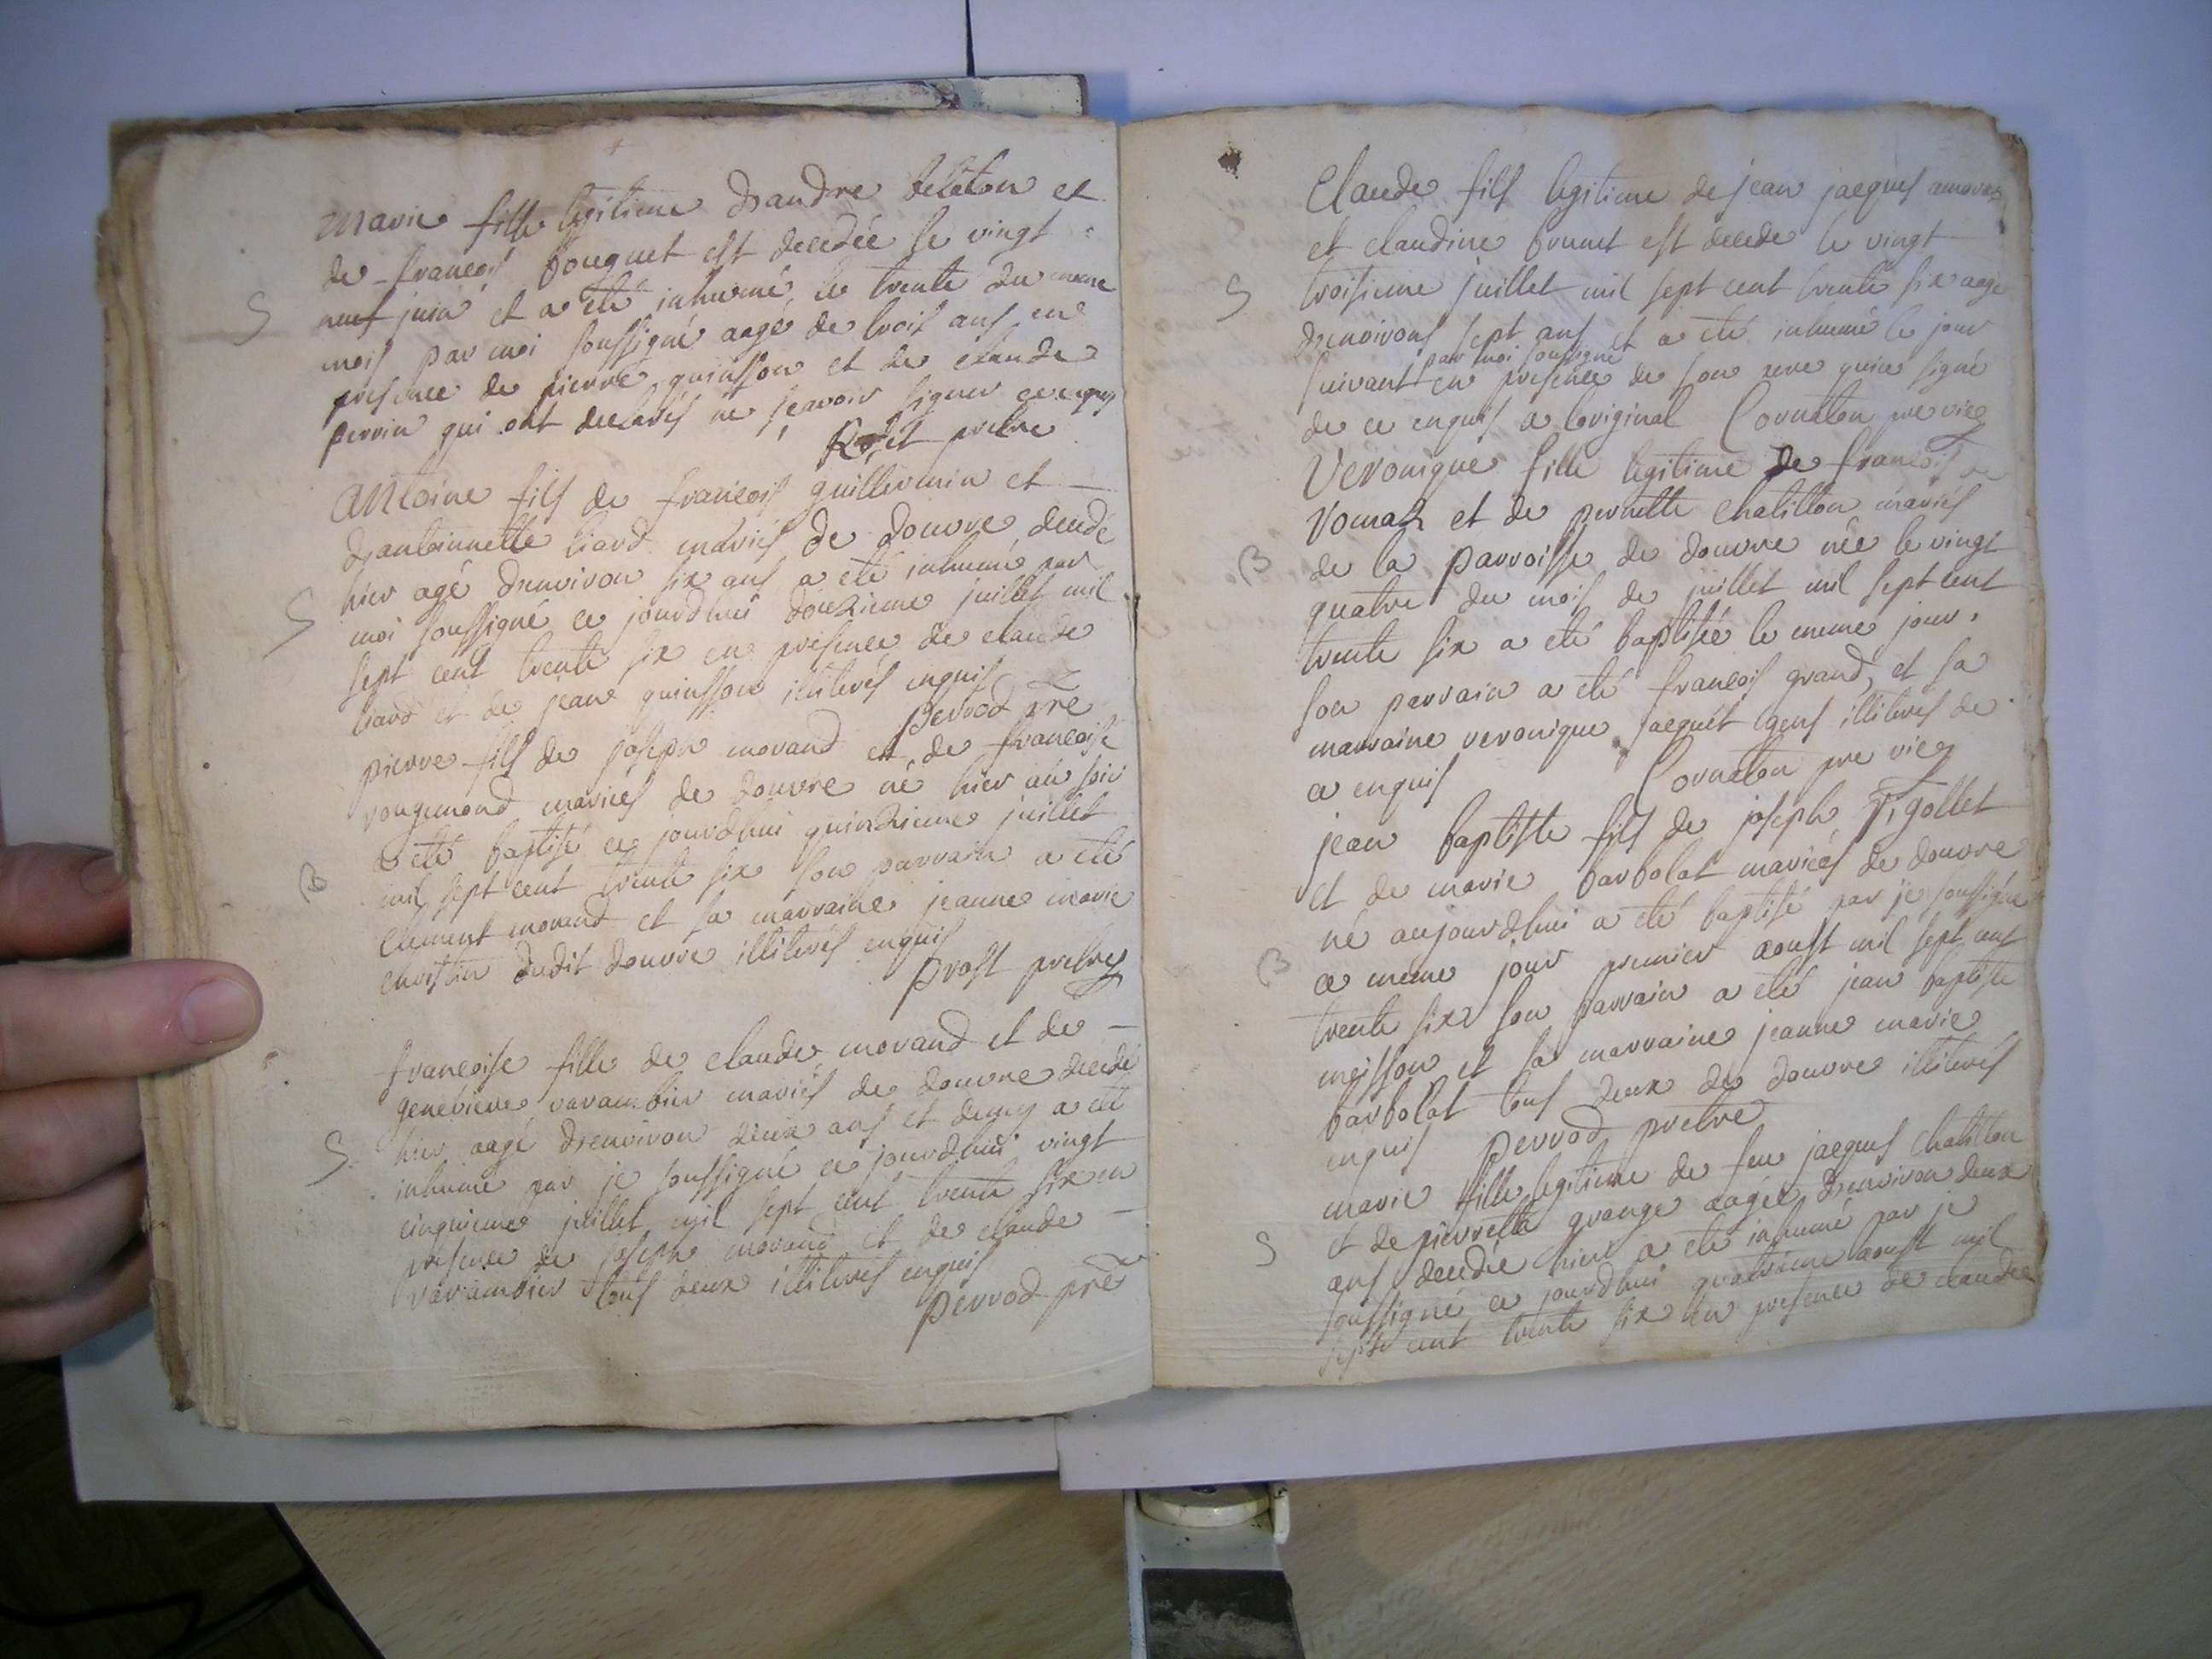 Marie fille legitime dandre
de francois bouquet est decedée le vingt
S
neuf juin et a eté inhumé le trente du meme
mois par moi soussigné aagé de trois ans en
presence de pierre quinsson et de claude
perrin qui ont declarés ne scavoir signer ce enquis
prebtre
Antoine fils de francois guillermin et
dantoinnette liard mariés de douvre decedé
S
hier agé denviron six ans a eté inhumé par
moi soussigné ce jourdhui douzieme juillet mil
sept cent trente six en presence de claude
liard et de jean quinsson illiterés enquis
perrod pre
pierre fils de joseph morand et de francoise
rougemond mariés de douvre né hier au soir
B
a eté baptisé ce jourdhui quinzieme juillet
mil sept cent trente six son parrain a eté
clement morand et sa marraine jeanne marie
dudit douvre illiterés enquis
prost prebtre
francoise fille de claude morand et de
genevieve varambier mariés de douvre decedé
S
hier aagé denviron deux ans et demy a eté
inhumé par je soussigné ce jourdhui vingt
cinquieme juillet mil sept cent trente six en
presence de joseph morand et de claude
varambier tous deux illiterés enquis
perrod pre
Claude fils legitime de jean jacques
et claudine brunet est decede le vingt
S
troisieme juillet mil sept cent trente six aagé
denvirons sept ans et a eté inhumé le jour
par moi soussigné
suivant en presence de son pere qui a signé
de ce enquis a loriginal Cornaton pre vic
Veronique fille legitime de francois
vomaz et de pernette chatillon mariés
B
de la parroisse de douvre née le vingt
quatre du mois de juillet mil sept cent
trente six a eté baptisée le meme jour.
son parrain a eté francois grand, et sa
marraine veronique jacquet gens illiterés de
ce enquis Cornaton pre vic
jean baptiste fils de joseph pigollet
et de marie barbolat mariés de douvre
né aujourdhui a eté baptisé par je soussigné
B
ce meme jour premier aoust mil sept cent
trente six son parrain a eté jean baptiste
meisson et sa marraine jeanne marie
barbolat tous deux de douvre illiterés
enquis perrod prebtre
marie fille legitime de feu jacques chatillon
S
et de pierrette grange aagée denviron deux
ans decedée hier a eté inhumé par je
soussigné ce jourdhui quatrieme aoust mil
sept cent trente six en presence de claude